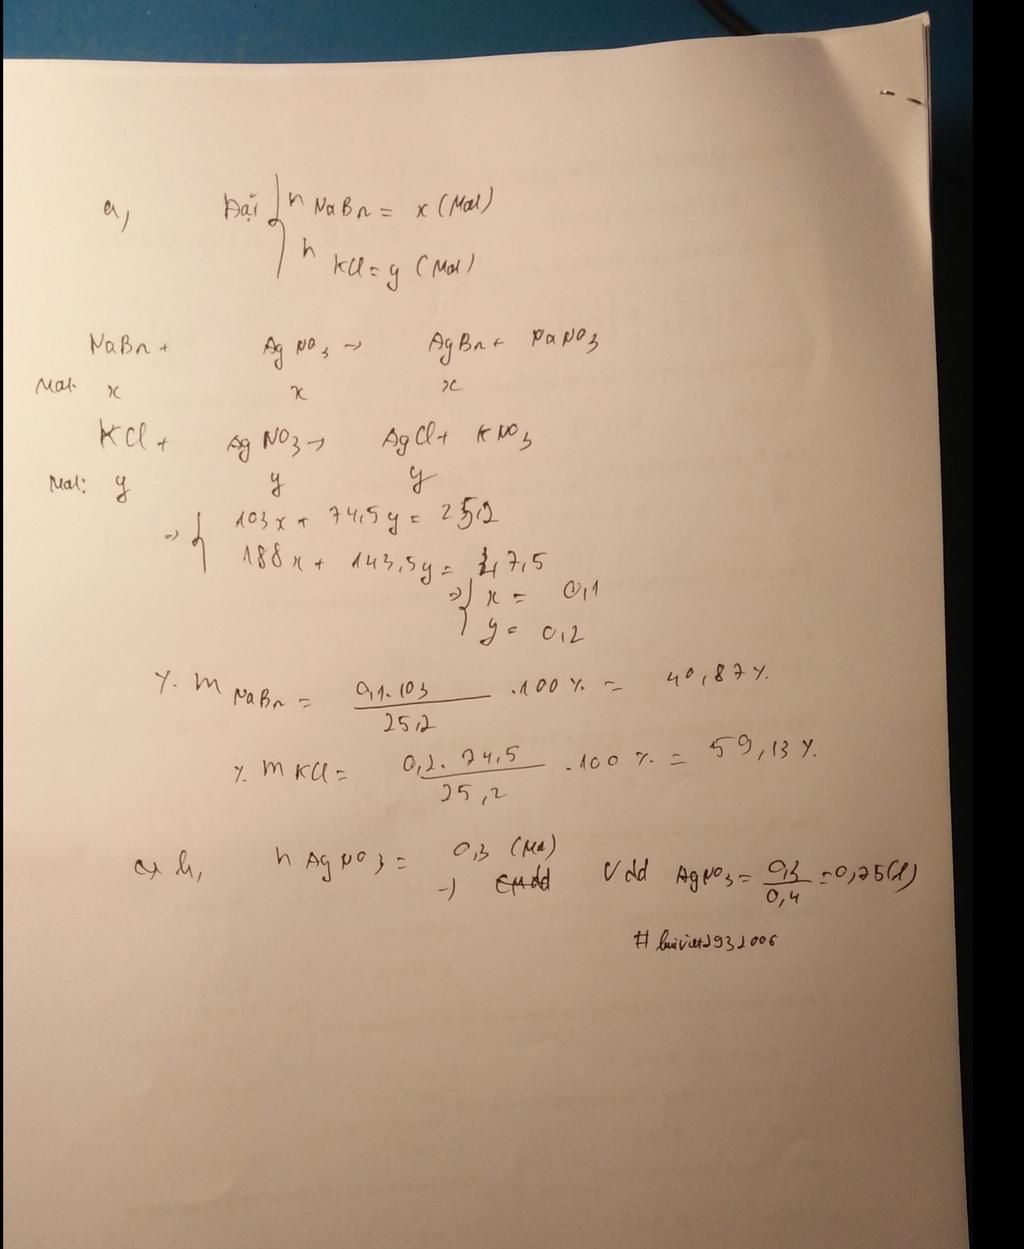 a, Đặt { n NaBr = x (Mol)
n KCl = y (Mol)
NaBr + AgNO3 → AgBr + NaNO3
Mol: x x x
KCl + AgNO3 → AgCl + KNO3
Mol: y y y
=> { 103x + 74,5y = 25,2
188x + 143,5y = 47,5
=> { x = 0,1
y = 0,2
% m NaBr = 0,1.103 / 25,2 .100% = 40,87%
% m KCl = 0,2.74,5 / 25,2 .100% = 59,13%
b, n AgNO3 = 0,3 (Mol)
→ V dd AgNO3 = 0,3 / 0,4 = 0,75(l)